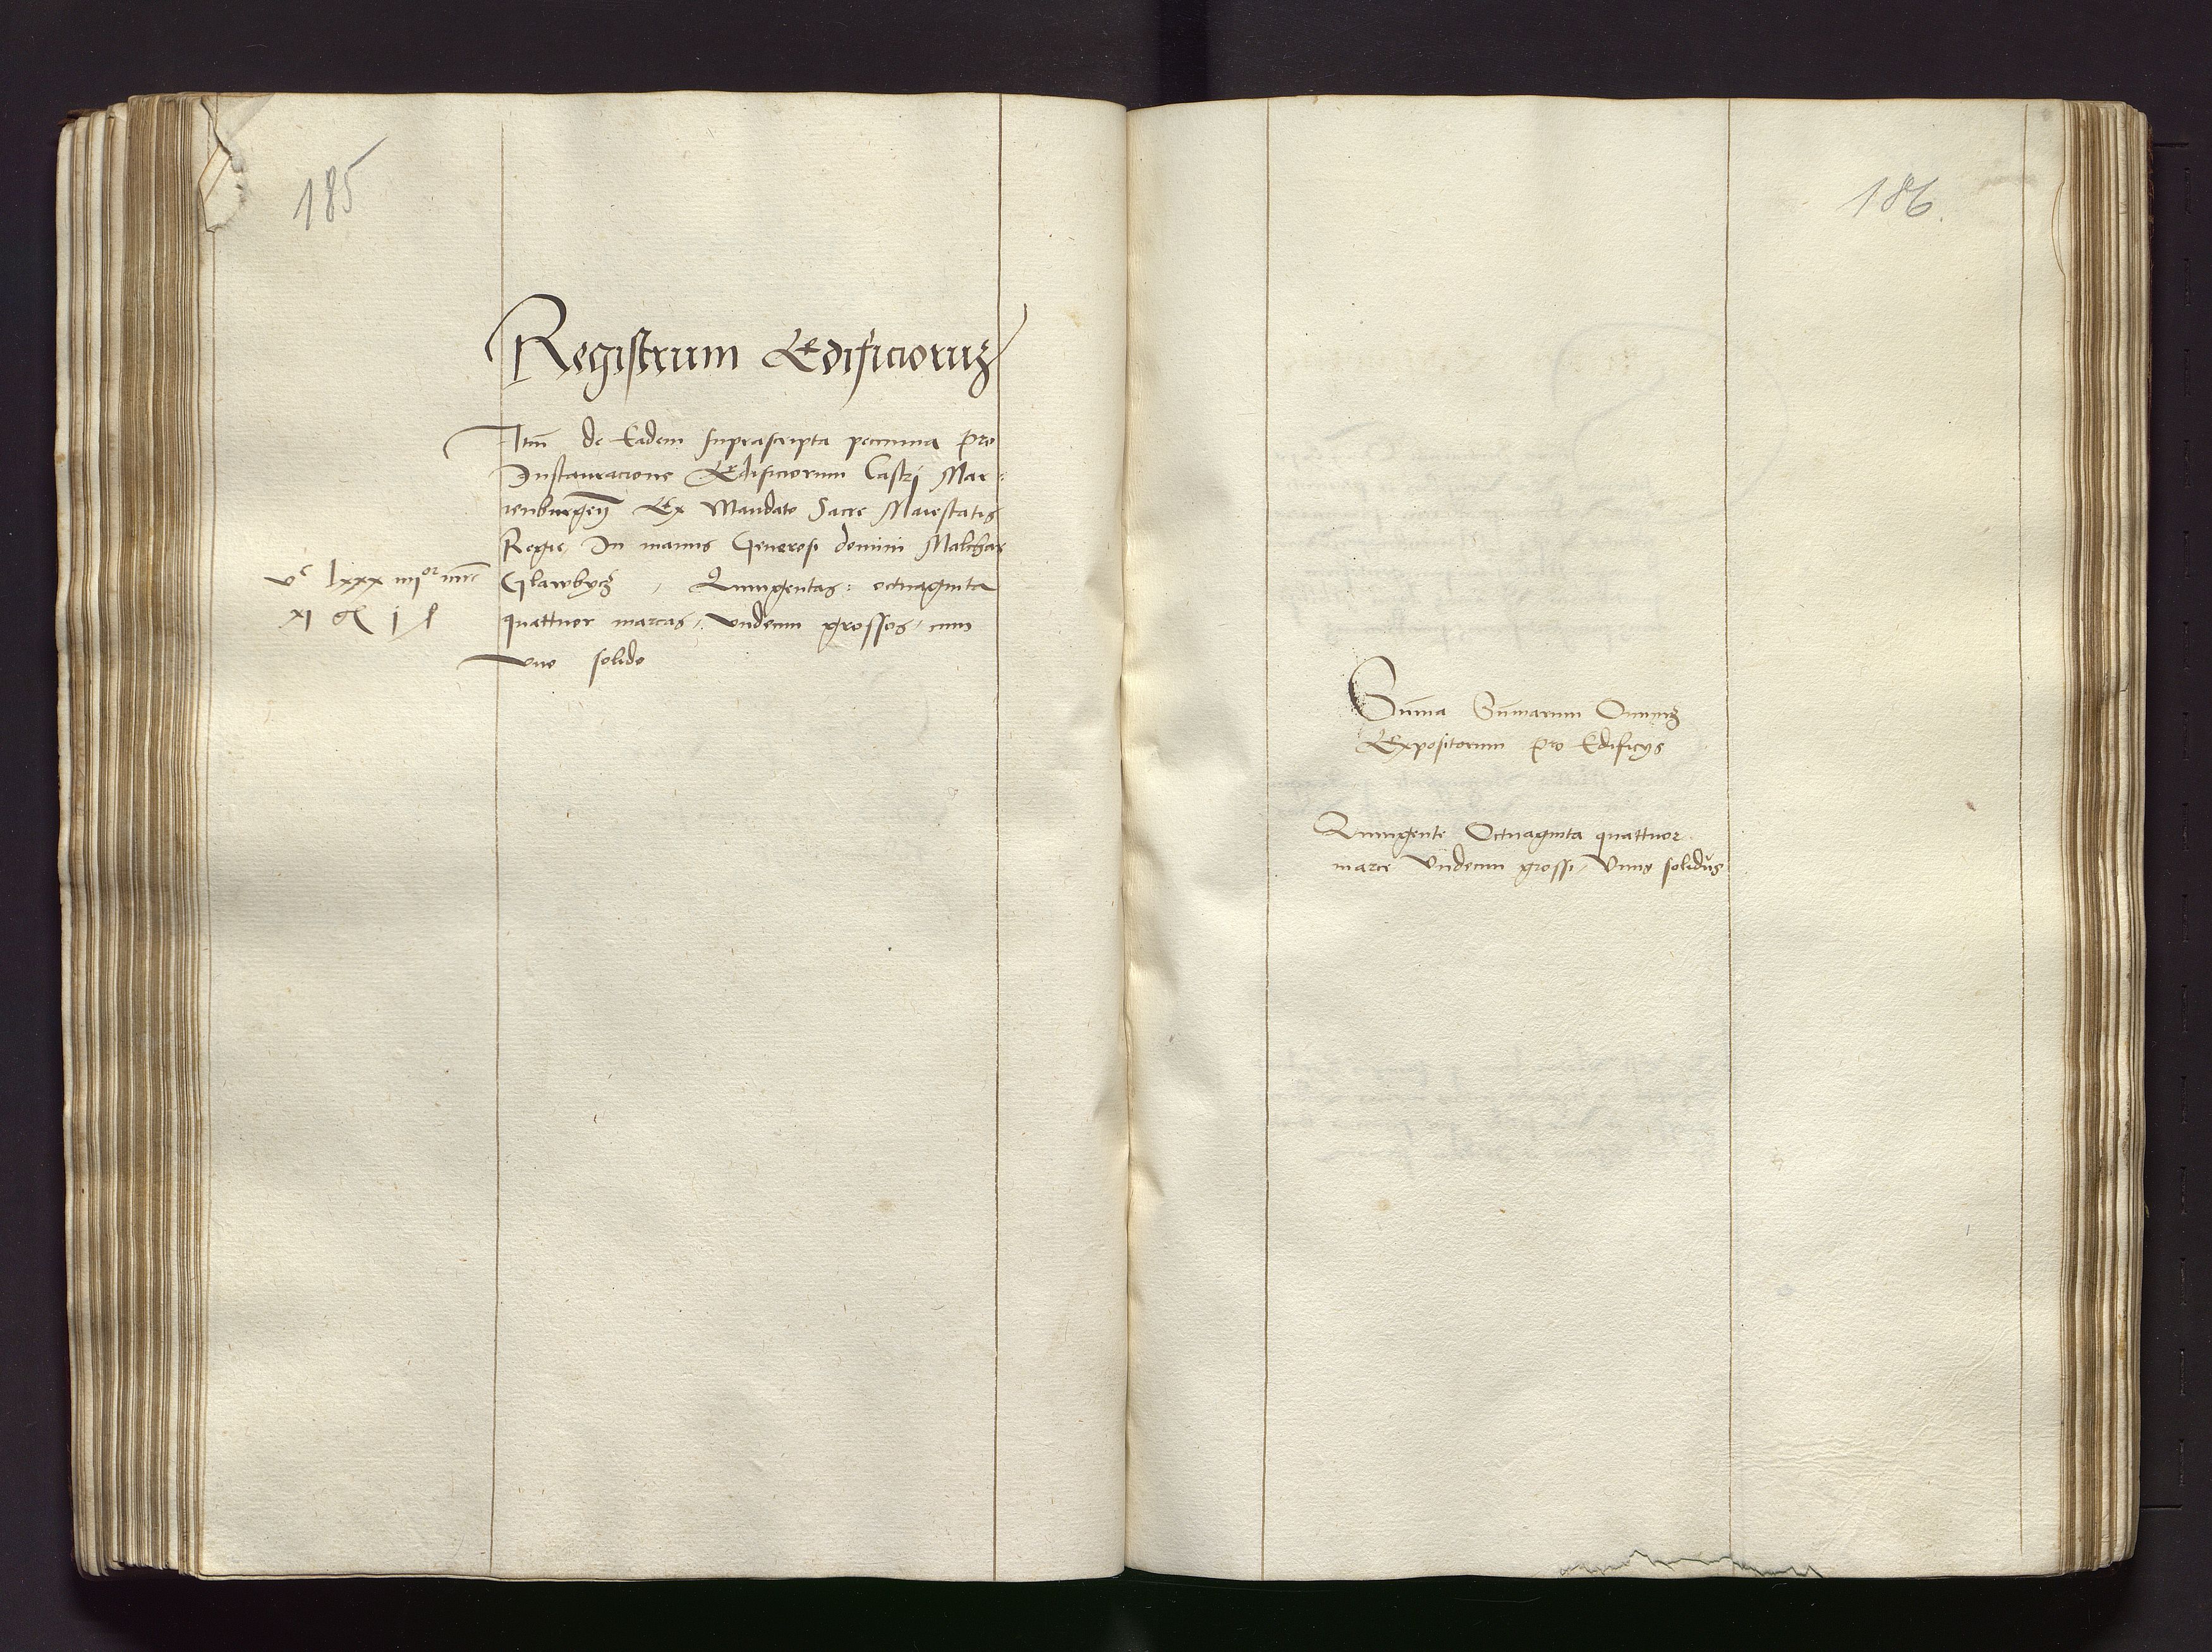 185
Registrum Edificioruz
Itm de Eadem suprascripta pecunia pro
Instauracione Edificiorum Castri Mar:
ienburgen Ex Mandato Sacre Maiestatis
Regie In manus Generosi domini Malchar
Glawbycz , Quingentas: octuaginta
quattuor marcas, undecim grossos, cum
uno solido
vc lxxx iiijor mrc
xj gr j ſ
186.
Suma Sumarum Omniuz
Expositorum pro Edificys
Quingente Octuaginta quattuor
marce Undecim grossi, Unus solidus